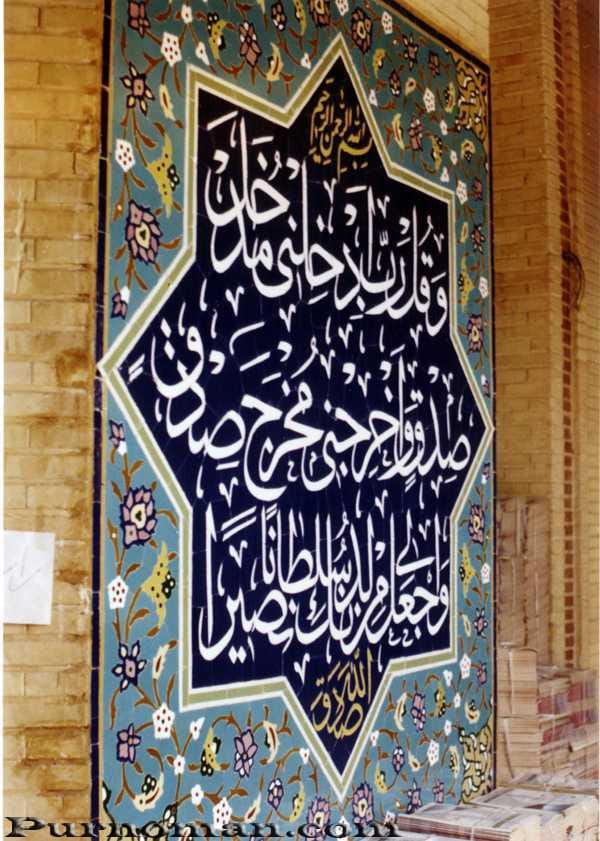 بسم الله الرحمن الرحیم
وَقُل رَبِّ اَدخِلنی مُدخَلَ
صِدقٍ وَاَخرِجنی مُخرَجَ صِدقٍ
وَاجعَل لی مِن لَدُنکَ سُلطانًا نَصیرًا
صدق الله
Purnoman.com